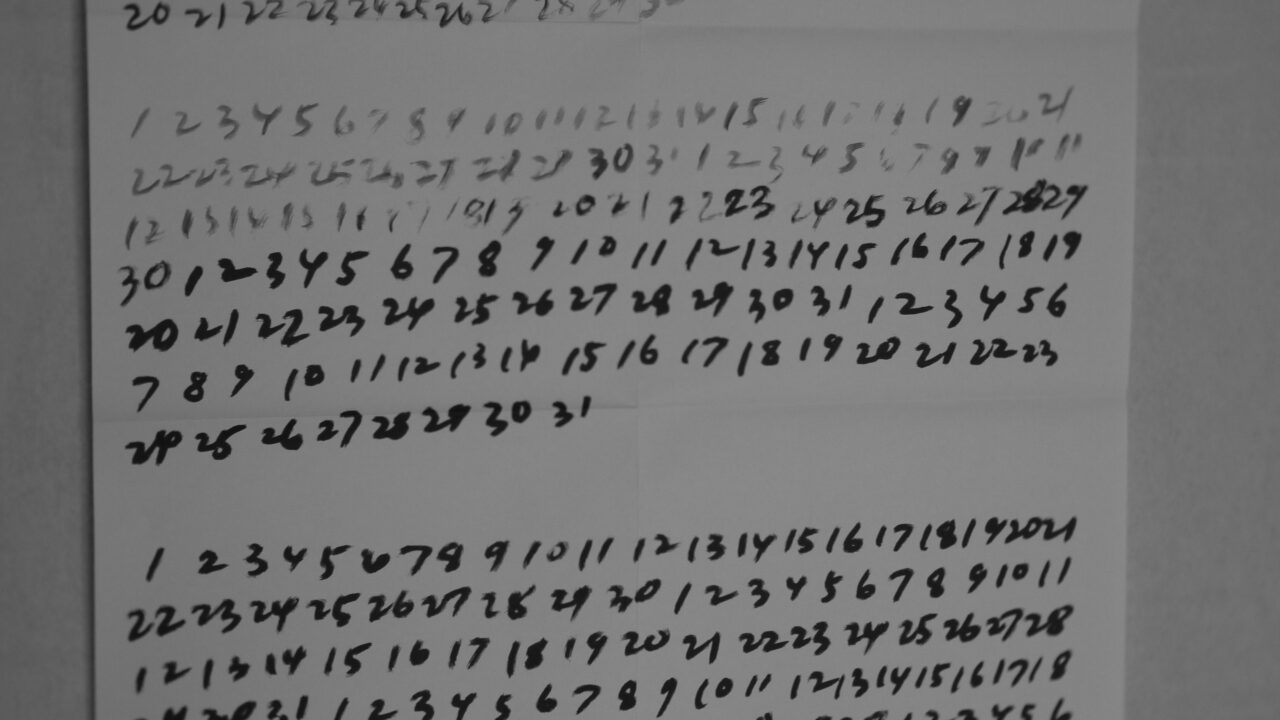 20 21 22 23 24 25 26 27 28 29 30
1 2 3 4 5 6 7 8 9 10 11 12 13 14 15 16 17 18 19 20 21
22 23 24 25 26 27 28 29 30 31 1 2 3 4 5 6 7 8 9 10 11
12 13 14 15 16 17 18 19 20 21 22 23 24 25 26 27 28 29
30 1 2 3 4 5 6 7 8 9 10 11 12 13 14 15 16 17 18 19
20 21 22 23 24 25 26 27 28 29 30 31 1 2 3 4 5 6
7 8 9 10 11 12 13 14 15 16 17 18 19 20 21 22 23
24 25 26 27 28 29 30 31
1 2 3 4 5 6 7 8 9 10 11 12 13 14 15 16 17 18 19 20 21
22 23 24 25 26 27 28 29 30 1 2 3 4 5 6 7 8 9 10 11
12 13 14 15 16 17 18 19 20 21 22 23 24 25 26 27 28
29 30 31 1 2 3 4 5 6 7 8 9 10 11 12 13 14 15 16 17 18
1 2 3 4 5 6